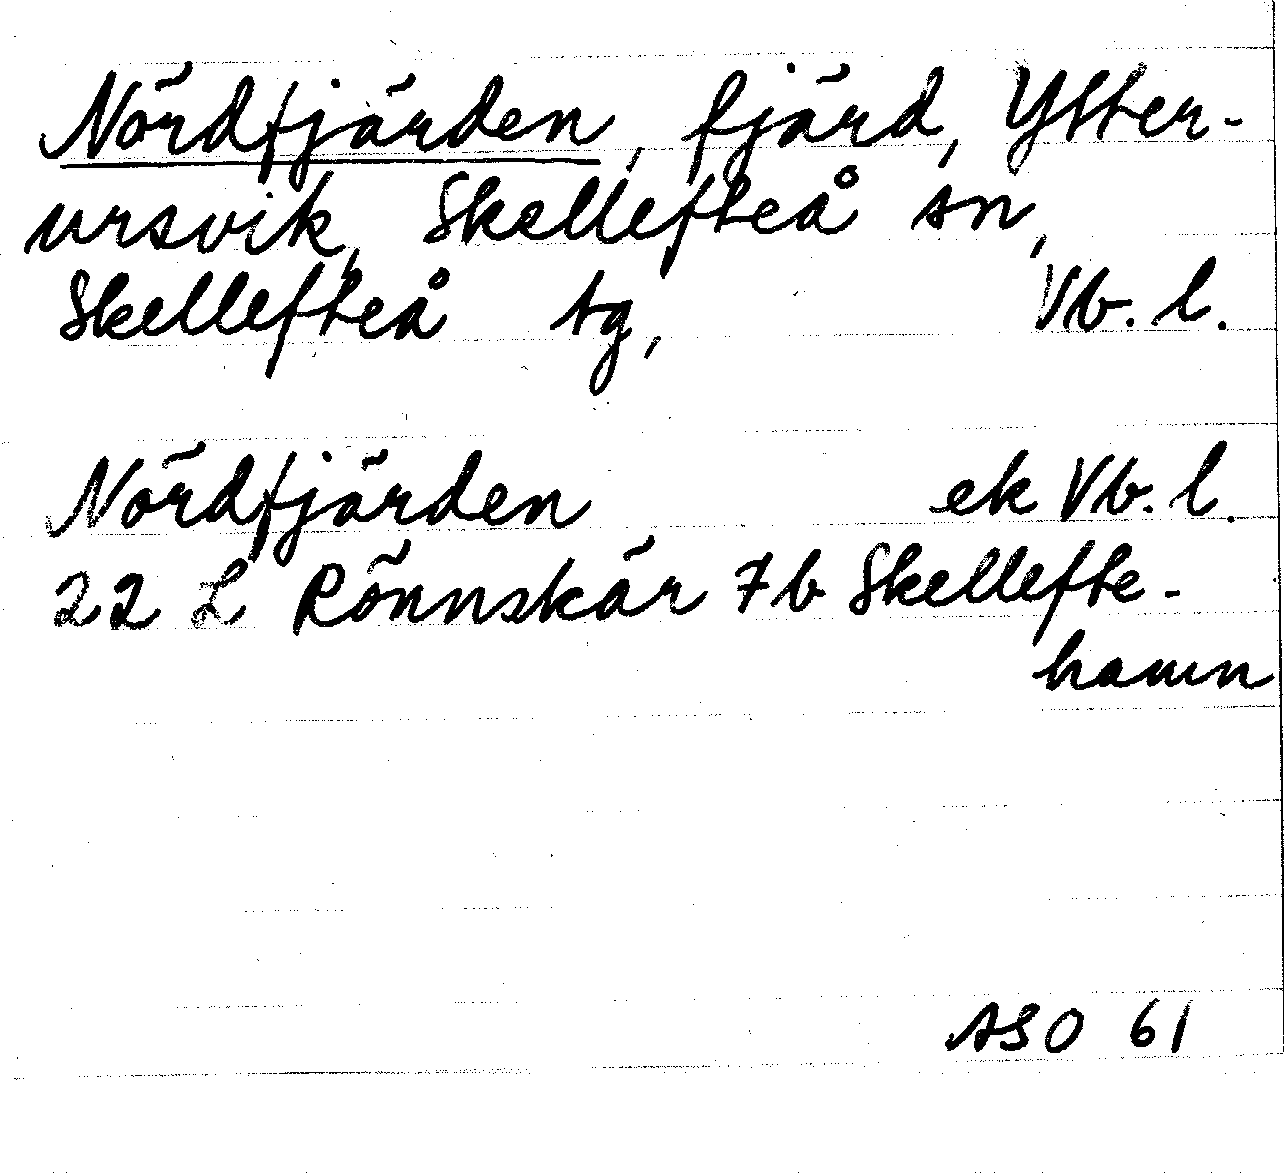 Nördfjärden, fjärd, Ytter-
ursvik, Skellefteå sn,
Skellefteå tg, Vb. l.
Nördfjärden ek Vb. l.
22 L Rönnskär 7b Skellefte-
hamn
ASO 61